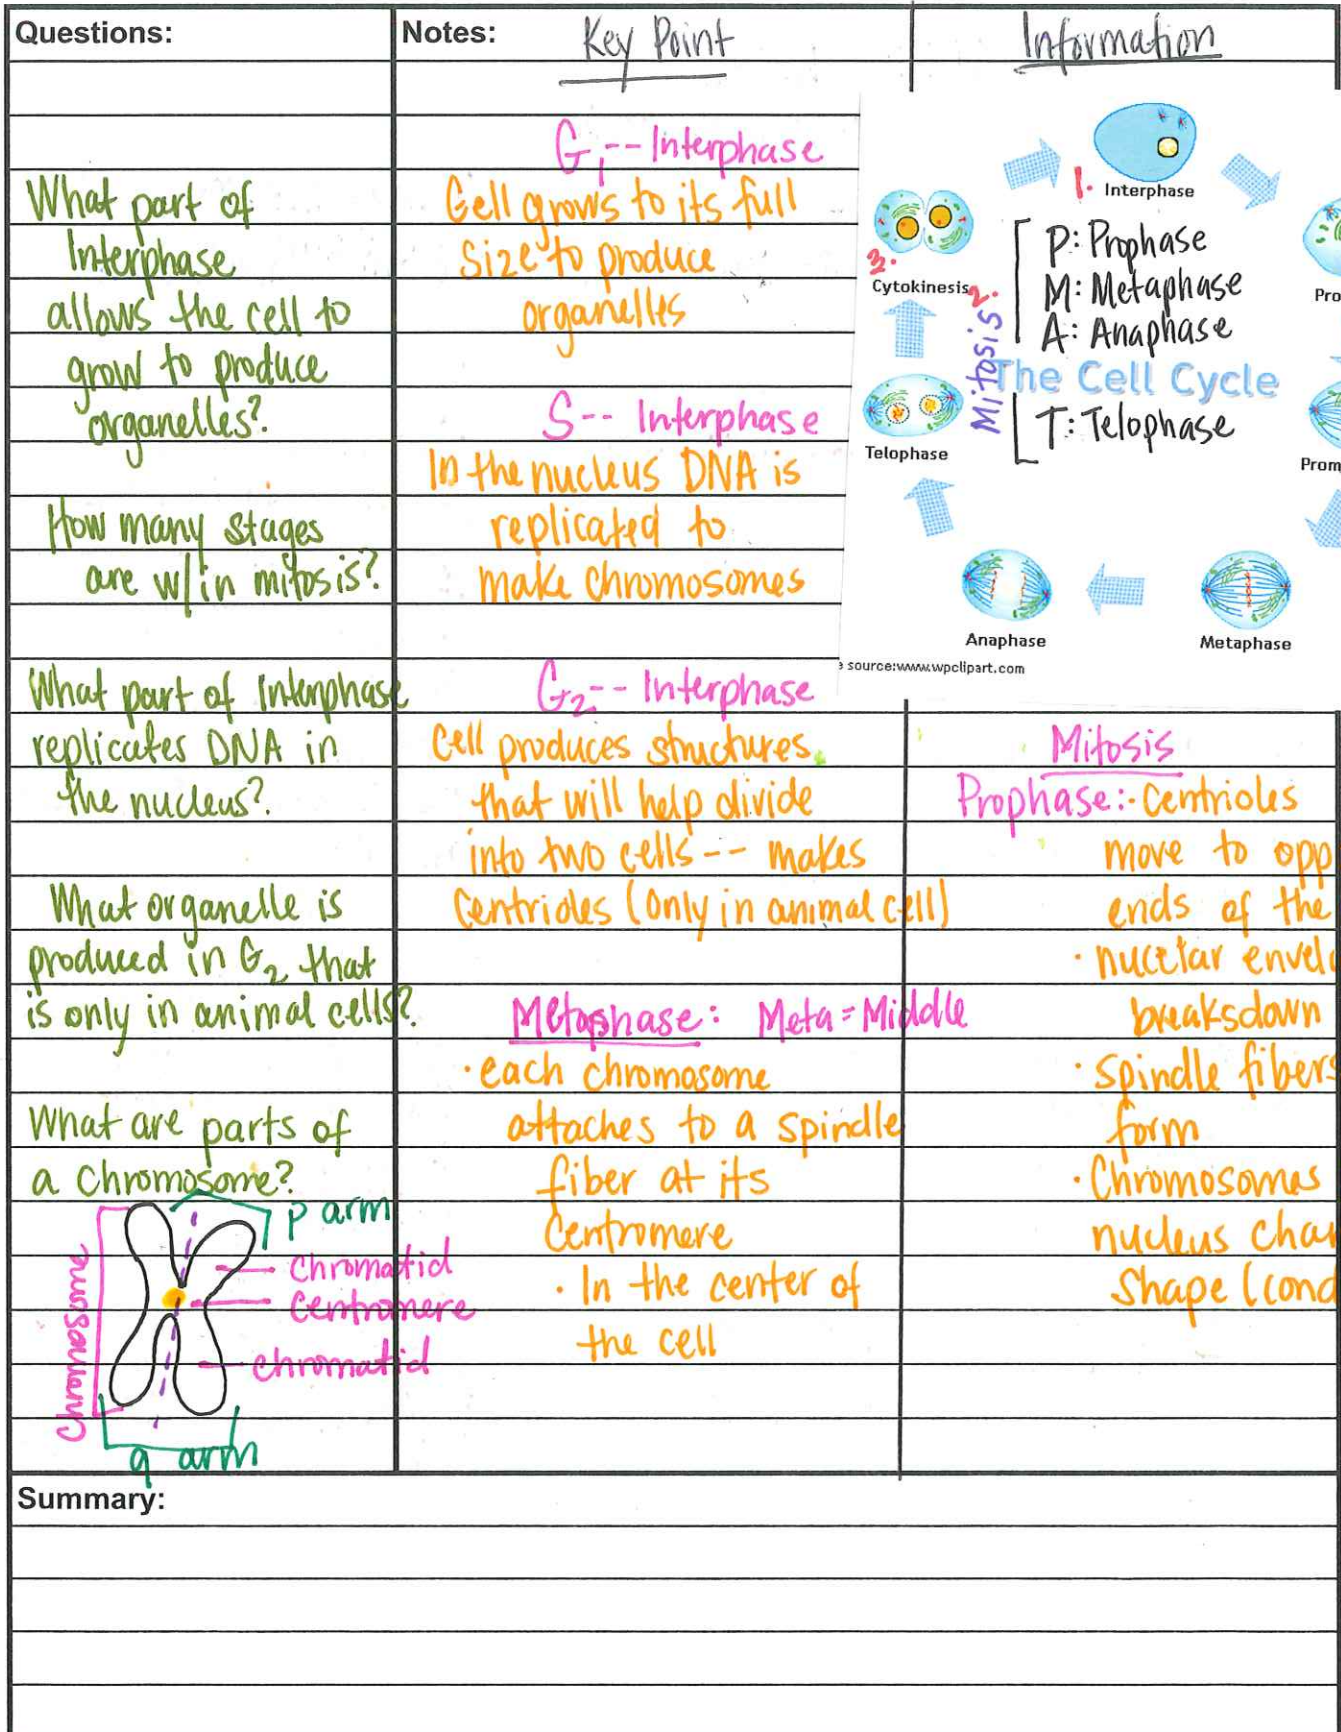 Questions:
Notes:
Key Point
Information
What part of
Interphase
allows the cell to
grow to produce
organelles?
How many stages
are w/in mitosis?
What part of Interphase
replicates DNA in
the nucleus?
What organelle is
produced in G2 that
is only in animal cells?
What are parts of
a chromosome?
p arm
chromatid
centromere
chromatid
chromosome
q arm
G1-- Interphase
Cell grows to its full
size to produce
organelles
S-- Interphase
In the nucleus DNA is
replicated to
make chromosomes
G2-- Interphase
Cell produces structures
that will help divide
into two cells -- makes
Centrioles (only in animal cell)
Metaphase: Meta = Middle
· each chromosome
attaches to a spindle
fiber at its
Centromere
· In the center of
the cell
1. Interphase
3.
Cytokinesis
2.
Mitosis
P: Prophase
M: Metaphase
A: Anaphase
The Cell Cycle
T: Telophase
Pro
Telophase
Prom
Anaphase
Metaphase
source:www.wpclipart.com
Mitosis
Prophase: · Centrioles
move to opp
ends of the
· nuclear envelo
breaksdown
· spindle fibers
form
· Chromosomes
nucleus chan
Shape (cond
Summary: